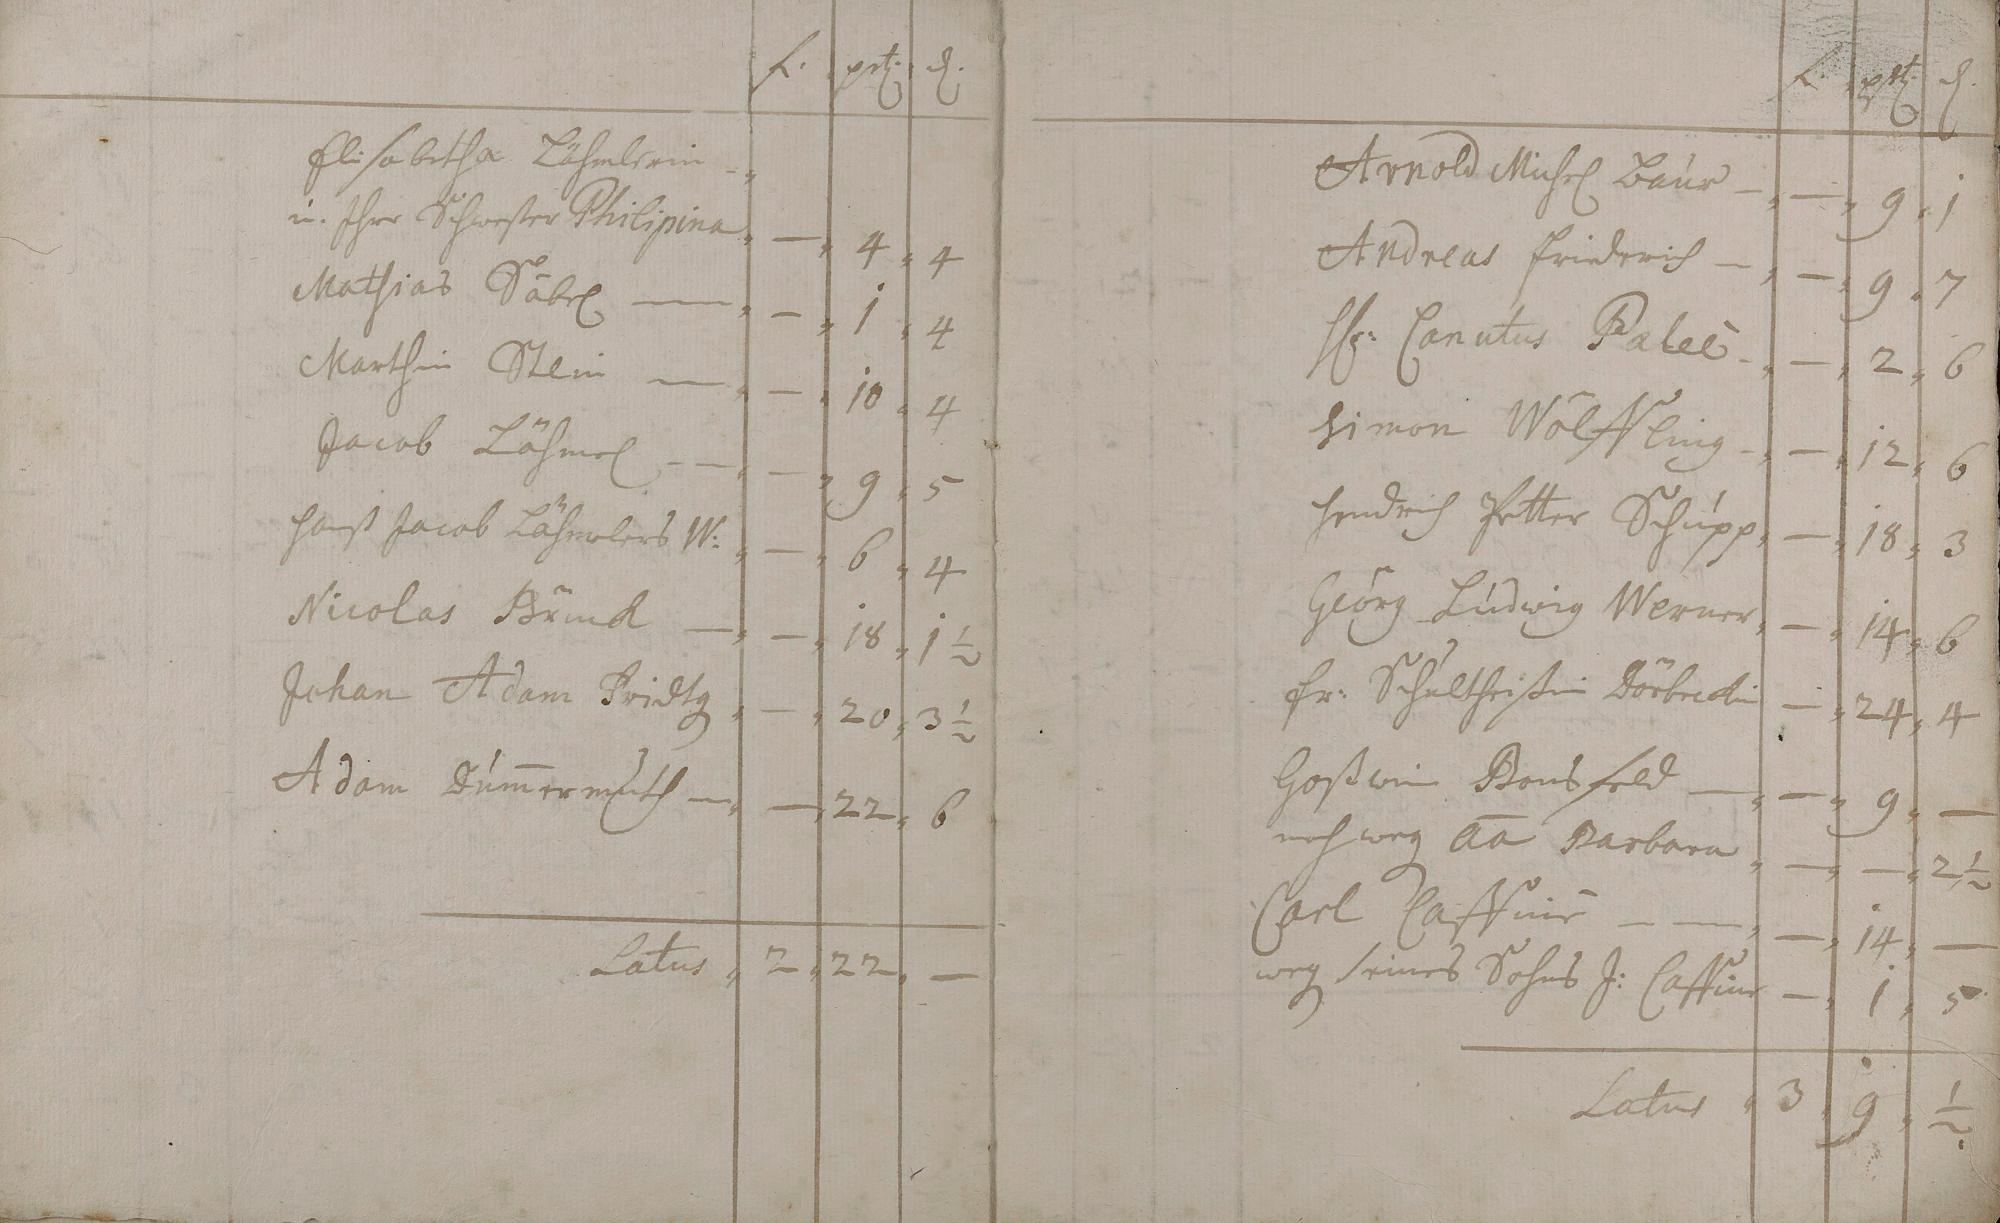 f. ptz. d.
Elisabetha Löhmlerin
u. Ihre Schwester Philipina — 4 4
Mathias Säbel — — 1 4
Marthin Stein — — 10 4
Jacob Löhmel — — 9 5
Hanß Jacob Löhmlers W: — 6 4
Nicolas Brück — — 18 1 1/2
Johan Adam Fridtg — 20 3 1/2
Adam Dummermuth — — 22 6
Latus 2 22 —
f. ptz. d.
Arnold Michel Baur — — 9 1
Andreas Friederich — — 9 7
Canutus — — 2 6
Simon Wölffling — — 12 6
Hendrich Petter Schupp — 18 3
Georg Ludwig Werner — 14 6
Fr: Schultheißin Dörbeckin — 24 4
Goßwin Bonsfeld — — 9 —
noch weg aa Barbara — — 2 1/2
Carl Caffine — — — 14 —
weg seines Sohns J: Caffine — 1 5
Latus 3 9 1/2